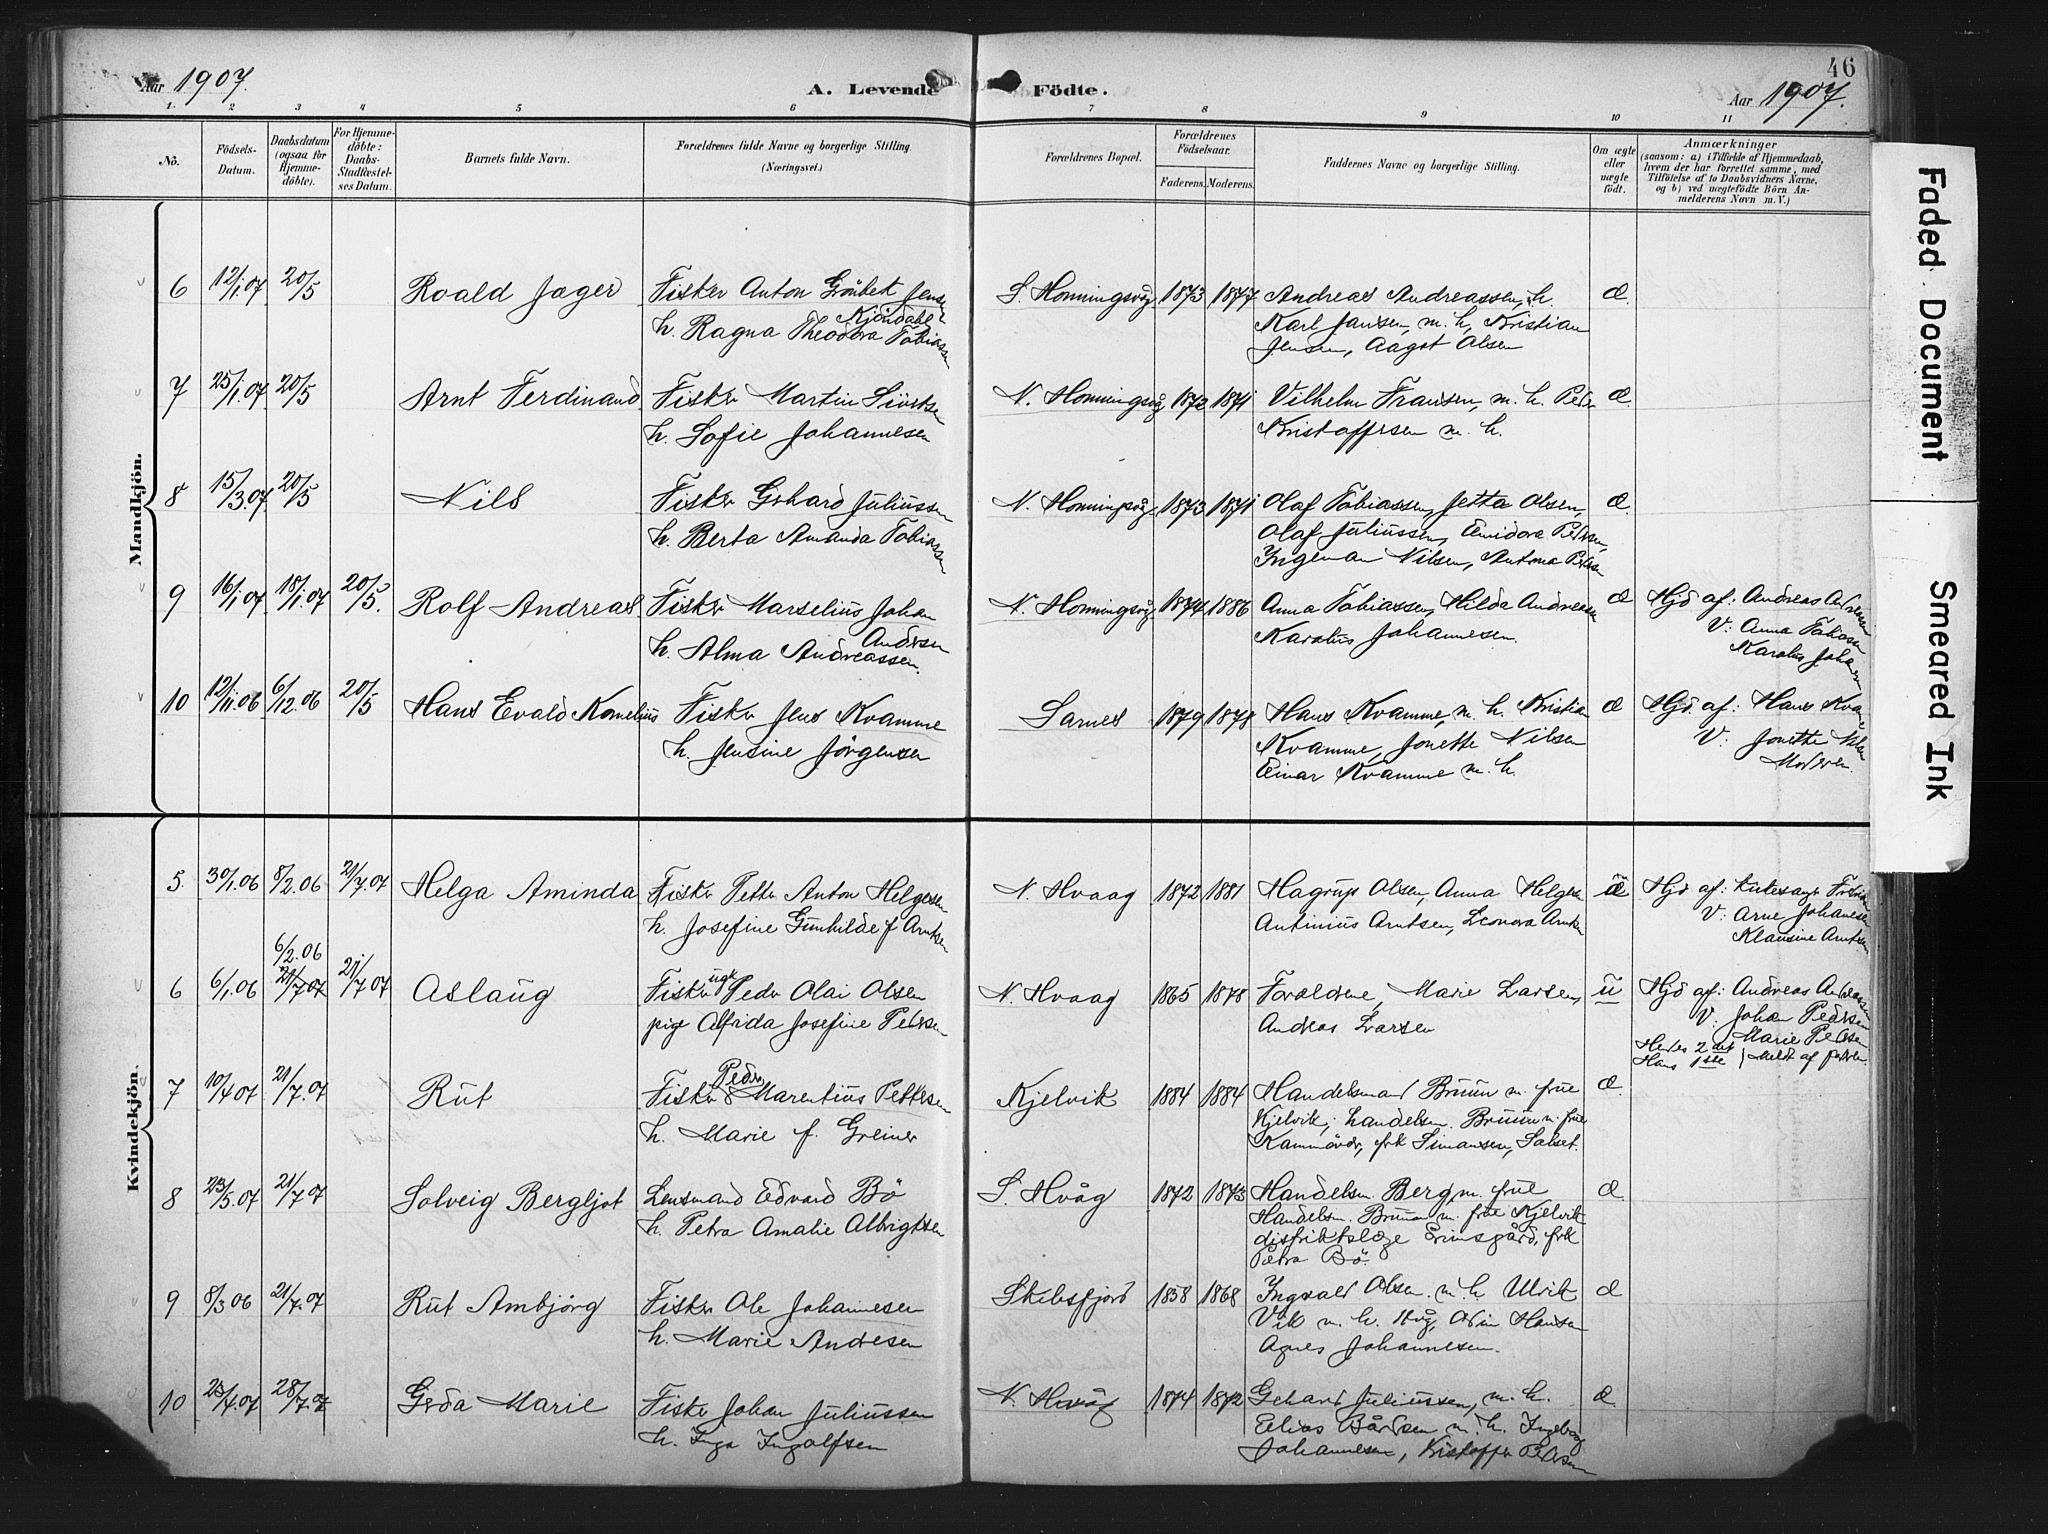 46
Aar 1907.
A. Levende Födte.
Aar 1907.
1 2 3 4 5 6 7 8 9 10 11
No.
Födsels-Datum.
Daabsdatum (ogsaa for Hjemmedöbte).
For Hjemmedöbte: Daabs-Stadfæstelses Datum.
Barnets fulde Navn.
Forældrenes fulde Navne og borgerlige Stilling. (Næringsvei.)
Forældrenes Bopæl.
Forældrenes Födselsaar.
Faderens. Moderens.
Faddernes Navne og borgerlige Stilling.
Om ægte eller uægte födt.
Anmærkninger
(saasom: a) i Tilfælde af Hjemmedaab, hvem der har forrettet samme, med Tilföielse af to Daabsvidners Navne, og b) ved uægtefödte Börn Anmelderens Navn m. V.)
Mandkjön.
6 12/1.07 20/5 Roald Jæger Fisker Anton Grönbek Jensen S. Honningsvåg 1873 1877 Andreas Andreassen, h. æ.
Kjöndahl
h. Ragna Theodora Tobiassen Karl Jansen, m. h, Kristian
Jensen, Aagot Olsen
7 25/1.07 20/5 Arnt Ferdinand Fisker Martin Sivertsen N. Honningsvåg 1872 1871 Vilhelm Fransen, m. h. Peder æ.
h. Sofie Johannesen Kristoffersen m. h.
8 15/3.07 20/5 Nils Fisker Gerhard Juliussen N. Honningsvåg 1873 1871 Olaf Tobiassen, Jetta Olsen, æ.
h. Berta Amanda Tobiassen Olaf Juliussen, Emidora Pedersen,
Ingeman Nilsen, Antona Pedersen
9 16/1.07 18/1.07 20/5. Rolf Andreas. Fisker Marselius Johan N. Honningsvåg 1874 1886 Anna Tobiassen, Hilda Andreassen æ Hjd af: Andreas Andreassen
Andersen V: Anna Tobiassen
h. Alma Andreassen. Karolus Johannesen. Karolus Johanesen
10 12/11.06 6/12.06 20/5 Hans Evald Kornelius Fisker Jens Kvamme Sarnes 1879 1878 Hans Kvamme, m. h. Kristian æ Hjd. af: Hans Kvamme
h. Jensine Jörgensen Kvamme, Jonette Nilsen V: Jonette Nilsen
Einar Kvamme m. h. Moderen.
Kvindekjön.
5. 30/1.06 8/2.06 21/7.07 Helga Aminda Fisker Petter Anton Helgesen N. Hvaag 1872 1881 Hagrup Olsen, Anna Helgesen æ Hjd af: Kirkesanger
h. Josefine Gunhilde f Arntsen Antinius Arntsen, Leonora Arntsen V: Arne Johannesen
Klausine Arntsen
6/2.06
6 6/1.06 21/7 07 21/7 07 Aslaug Fisker ugk Peder Olai Olsen N. Hvaag 1865 1878 Forældrene, Marie Larsen, u Hjd af: Andreas Andreassen
pige Alfrida Josefine Pedersen Andreas Larsen V: Johan Pedersen
Marie Pedersen
Hendes 2det
Hans 1ste } Meldt af faderen.
7 10/4 07 21/7.07 Rut Fisker Peder Marentius Pettersen Kjelvik 1884 1884 Handelsmand Bruun m. frue æ.
h. Marie f. Greiner Kjelvik, handelsm. Bruun m. frue
Kammövær, frk Simonsen,
8 23/5.07 21/7 07 Solveig Bergljot Lensmand Edvard Bö S. Hvåg 1872 1873 Handelsm. Berg, m. frue æ
h. Petra Amalie Albrigtsen Handelsm. Bruun m. frue Kjelvik
distriktslæge Grimsgård, frk
Petra Bö.
9 8/3 06 21/7.07 Rut Ambjörg Fisker Ole Johannesen Skibsfjord 1858 1868 Ingvald Olsen m. h Ulrik æ
h. Marie Andersen Vik m. h. Hvåg, Hansen
Agnes Johannesen.
10 23/4.07 28/7.07 Gerda Marie Fisker Johan Juliussen N. Hvåg 1874 1872 Gehard Juliussen, m. h. æ.
h. Inga Ingolfsen Elias Bårdsen m. h. Ingeborg
Johannesen, Kristoffer Pedersen
Faded Document
Smeared Ink